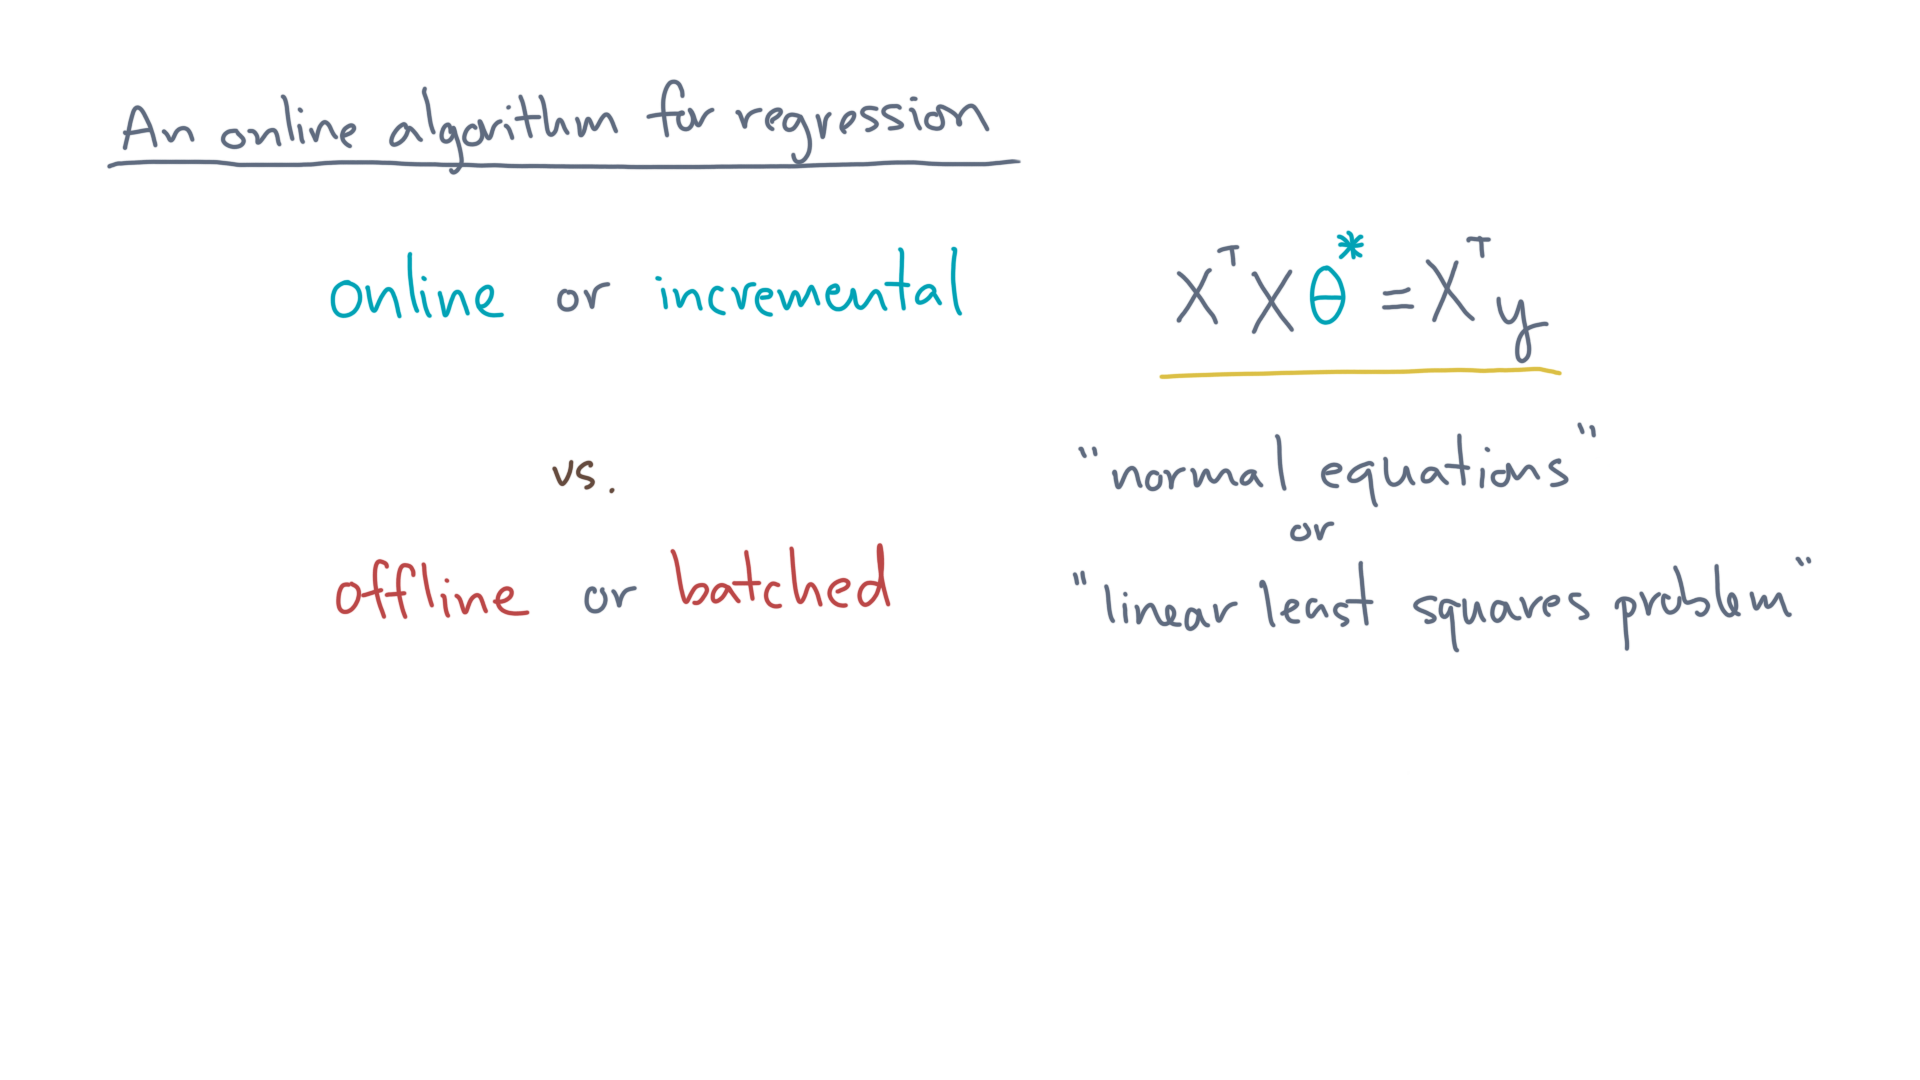 An online algorithm for regression
online or incremental
vs.
offline or batched
XᵀXθ* = Xᵀy
"normal equations"
or
"linear least squares problem"